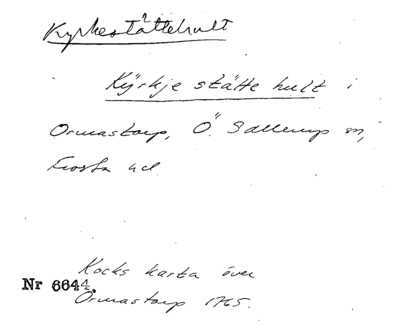 Kyrkestättehult
Kÿrkje stätte hult i
Ormastorp, Ö. Sallerup sn,
Frosta hd
Kocks karta över
Nr 6644.
Ormastorp 1765.